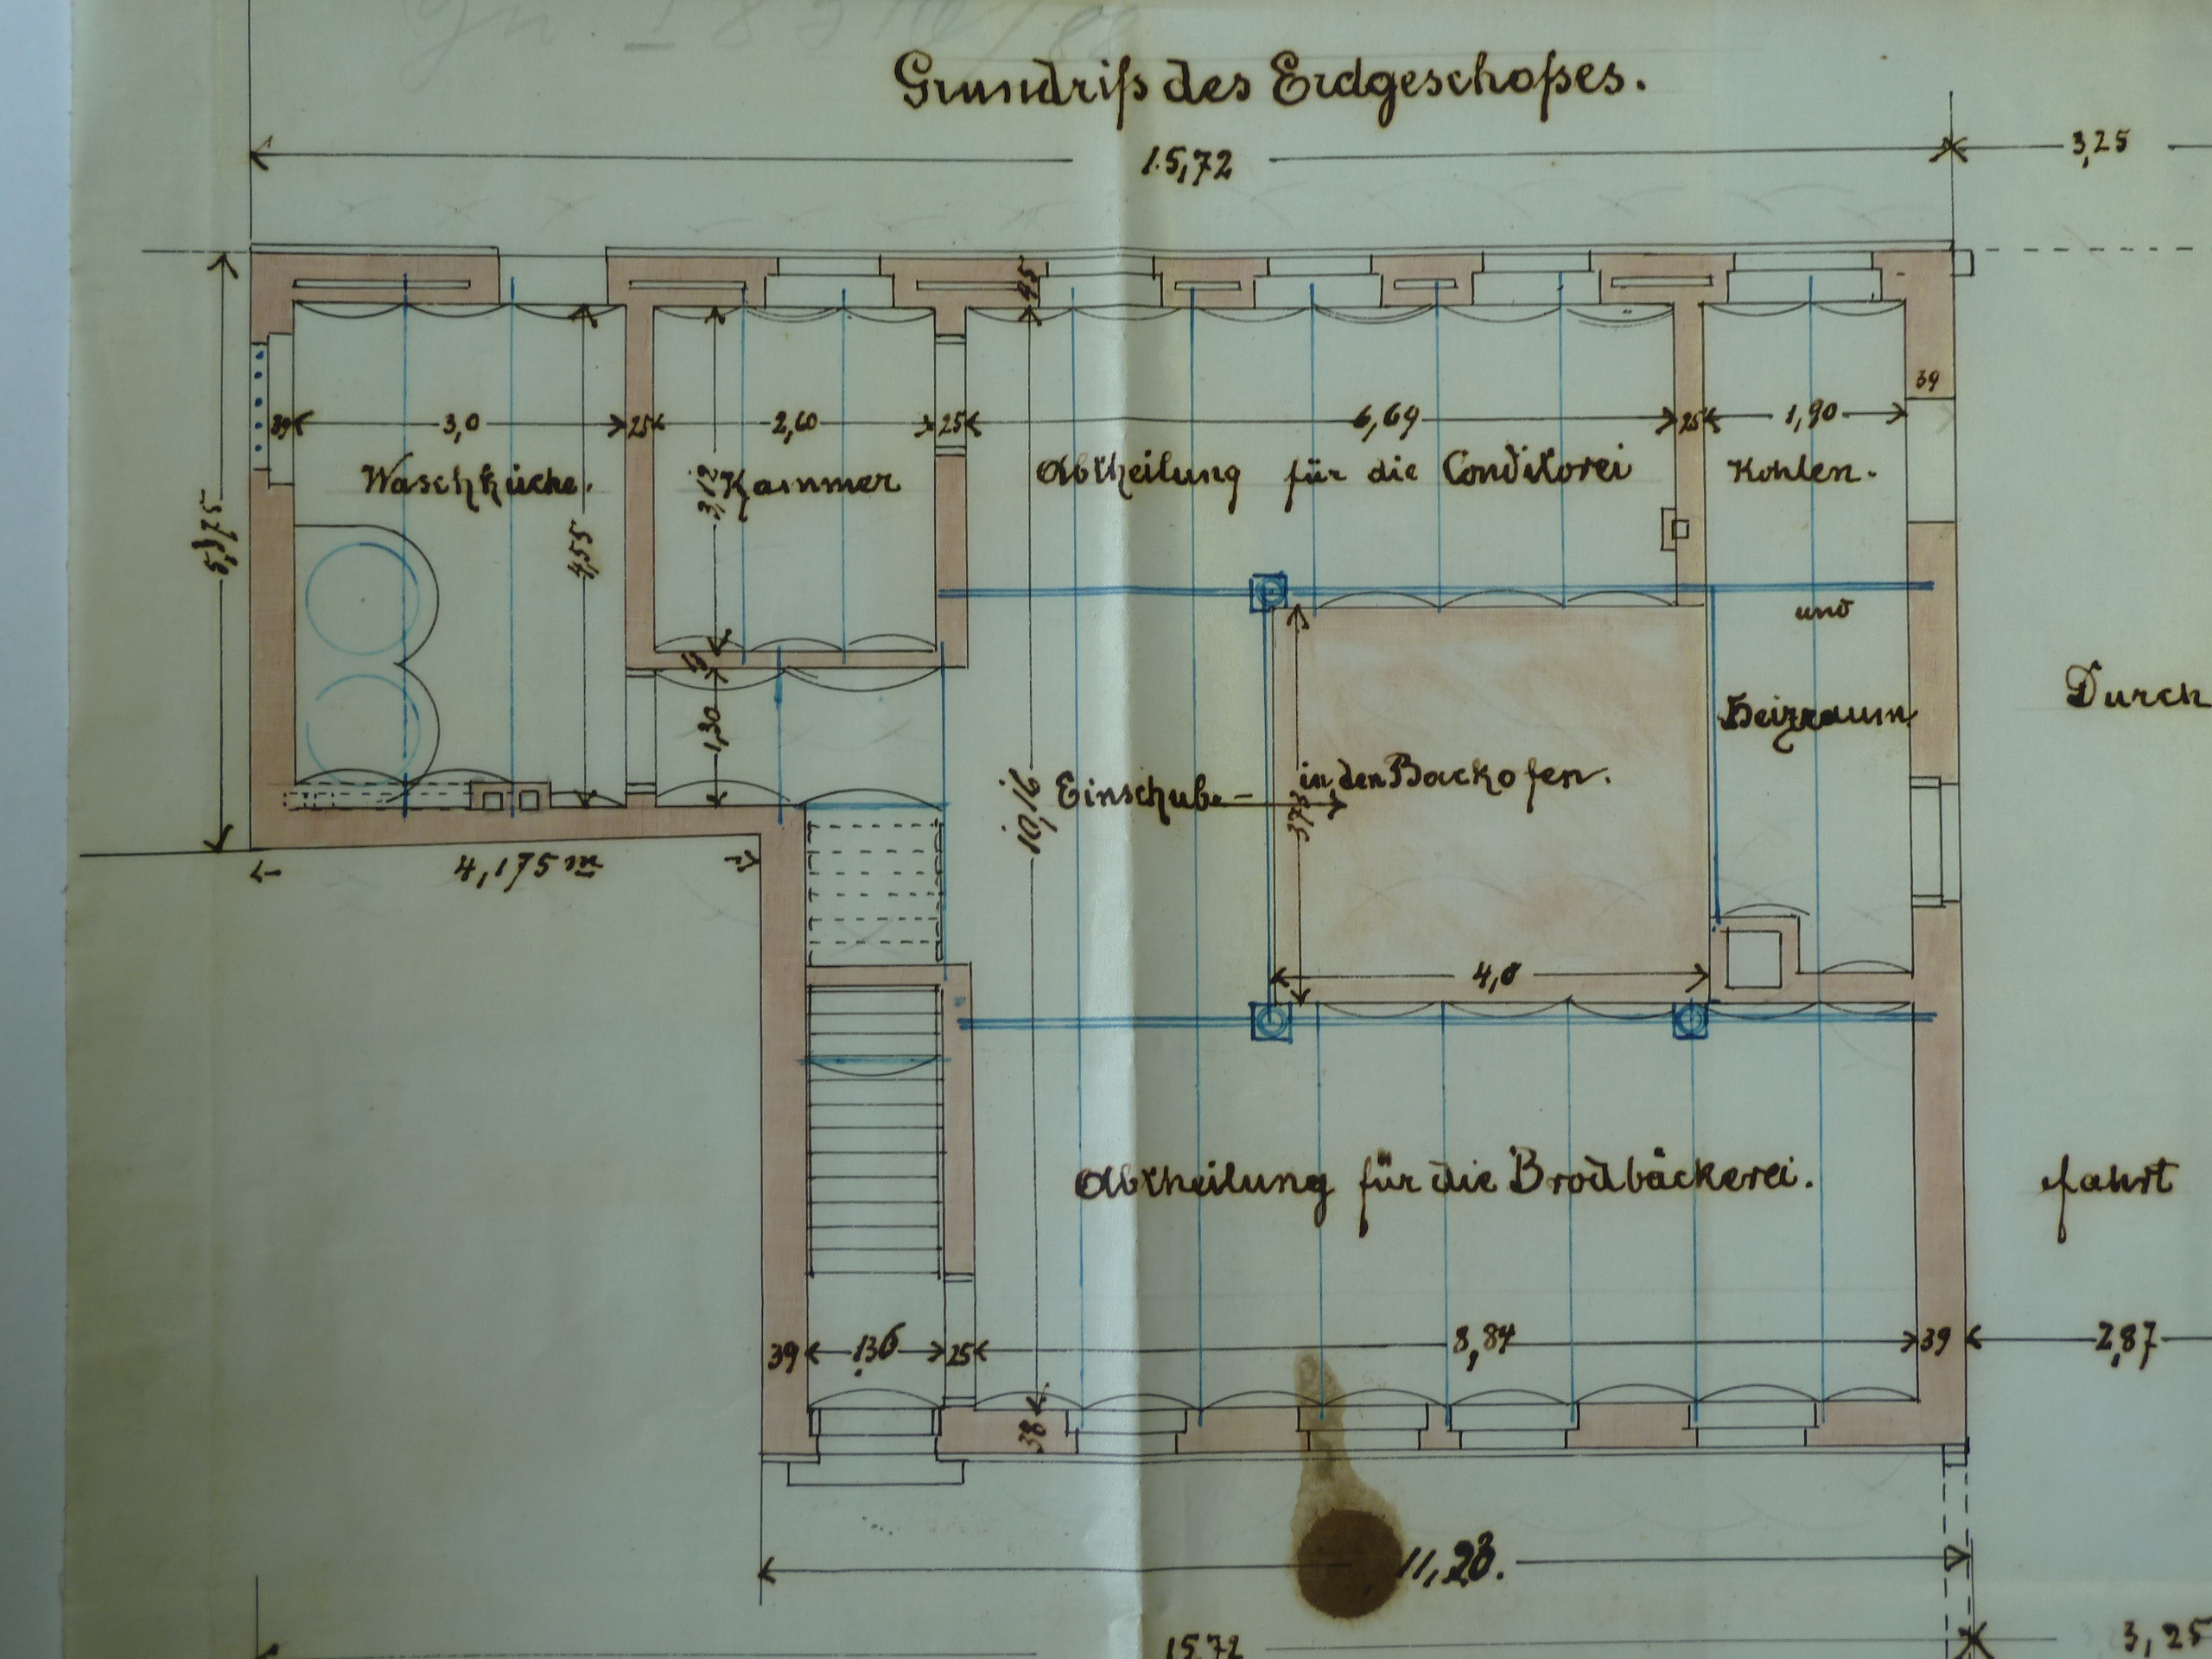 Grundriß des Erdgeschoßes.
15,72
3,25
45
39
39 3,0 25 2,60 25 6,69 25 1,90
Waschküche. Kammer Abtheilung für die Conditorei Kohlen.
3,12
5,175
4,55
und
Durch
15
Heizraum
1,30
10,16
Einschub- in den Backofen.
373
4,175 m
4,0
Abtheilung für die Brodbäckerei.
fahrt
39 1,36 25 8,84 39 2,87
38
11,23.
15,72
3,25